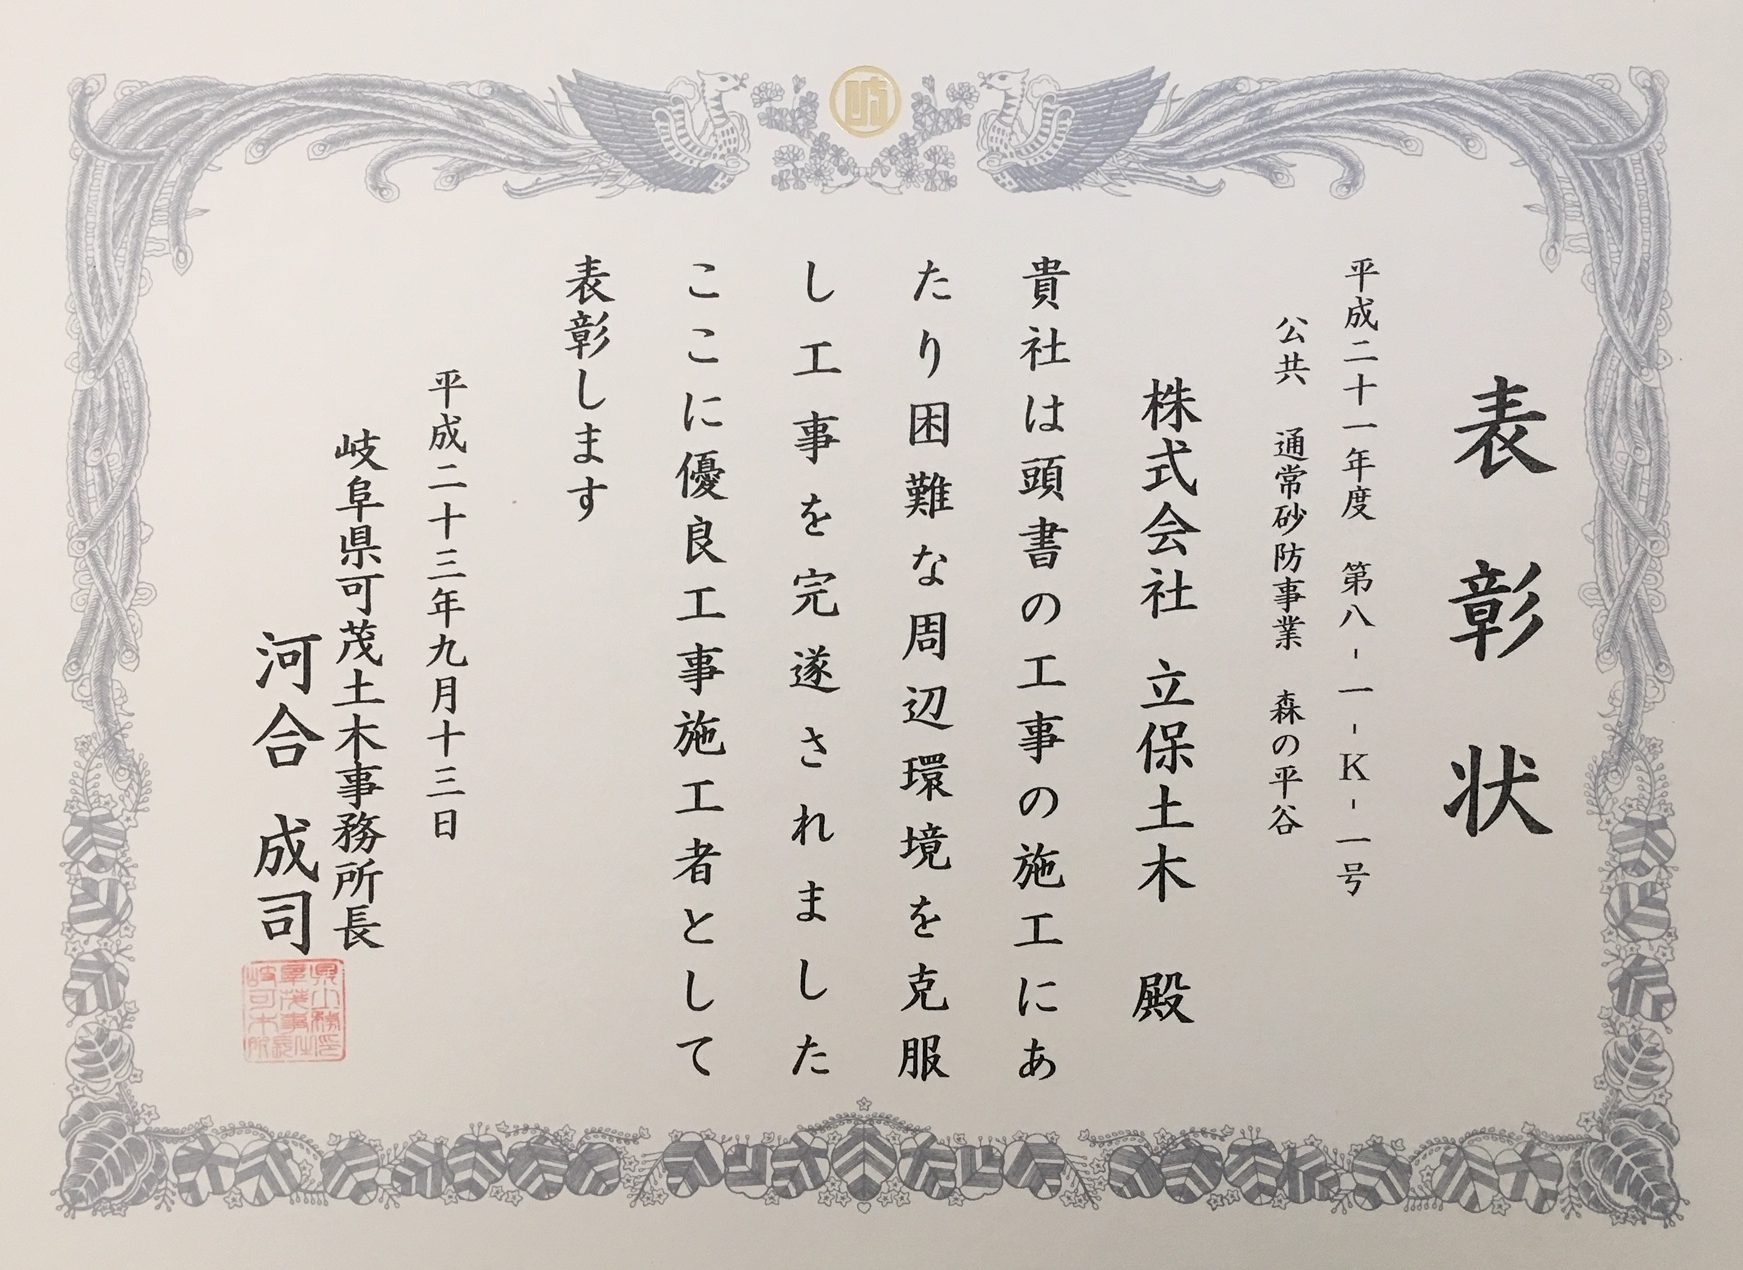 表彰状
平成二十一年度　第八-一-K-一号
公共　通常砂防事業　森の平谷
株式会社 立保土木　殿
貴社は頭書の工事の施工にあ
たり困難な周辺環境を克服
し工事を完遂されました
ここに優良工事施工者として
表彰します
平成二十三年九月十三日
岐阜県可茂土木事務所長
河合成司